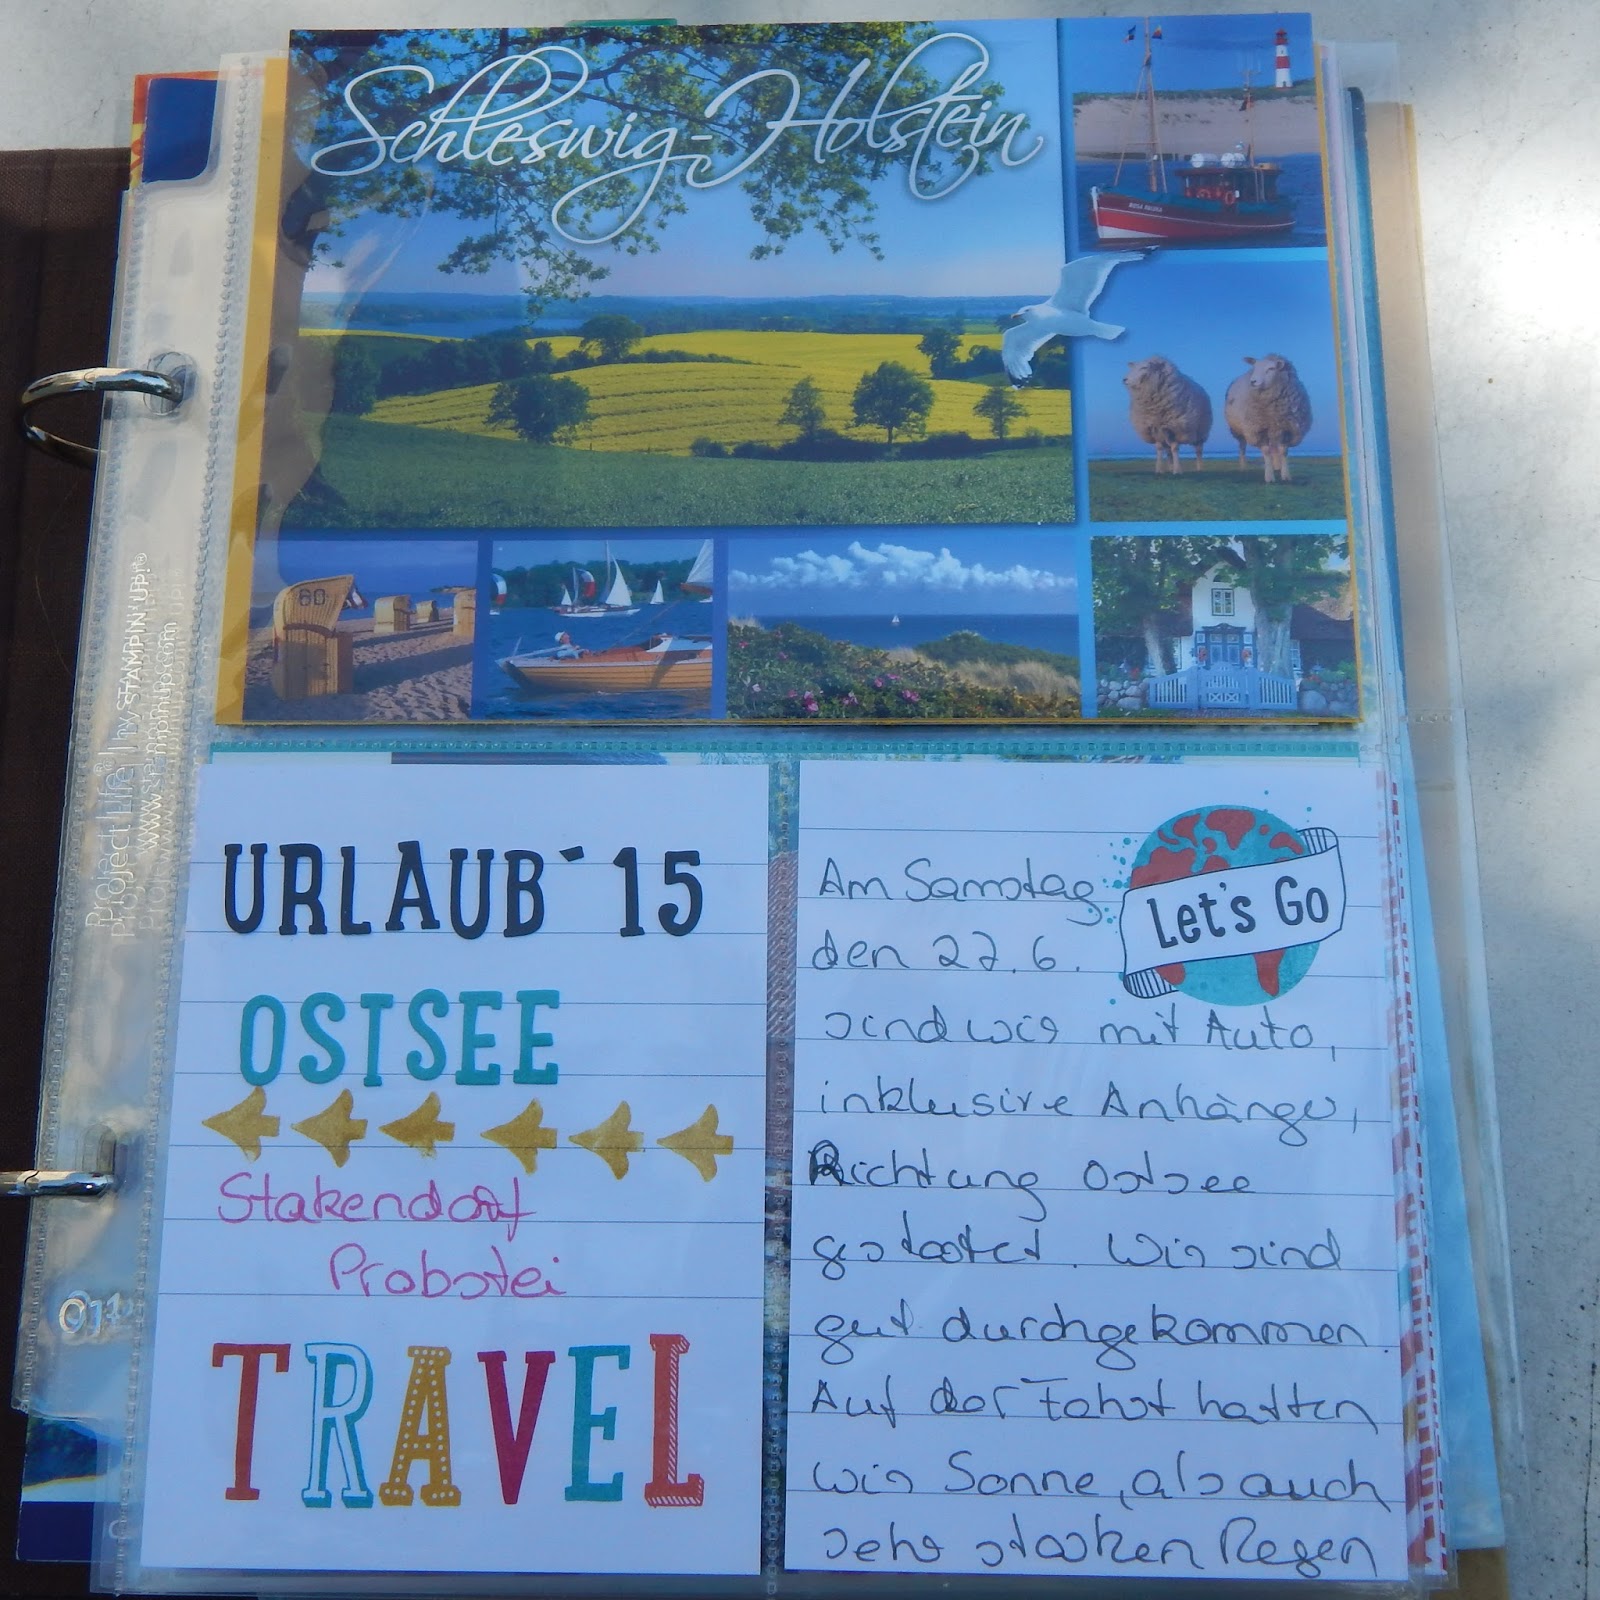 Schleswig-Holstein
60
Project Life® by STAMPIN' UP!®
www.stampinup.com
URLAUB´15
OSTSEE
Stakendorf
Probstei
TRAVEL
Let's Go
Am Samstag
den 27.6.
sind wir mit Auto,
inklusive Anhänger,
Richtung Ostsee
gestartet. Wir sind
gut durchgekommen.
Auf der Fahrt hatten
wir Sonne, als auch
sehr starken Regen